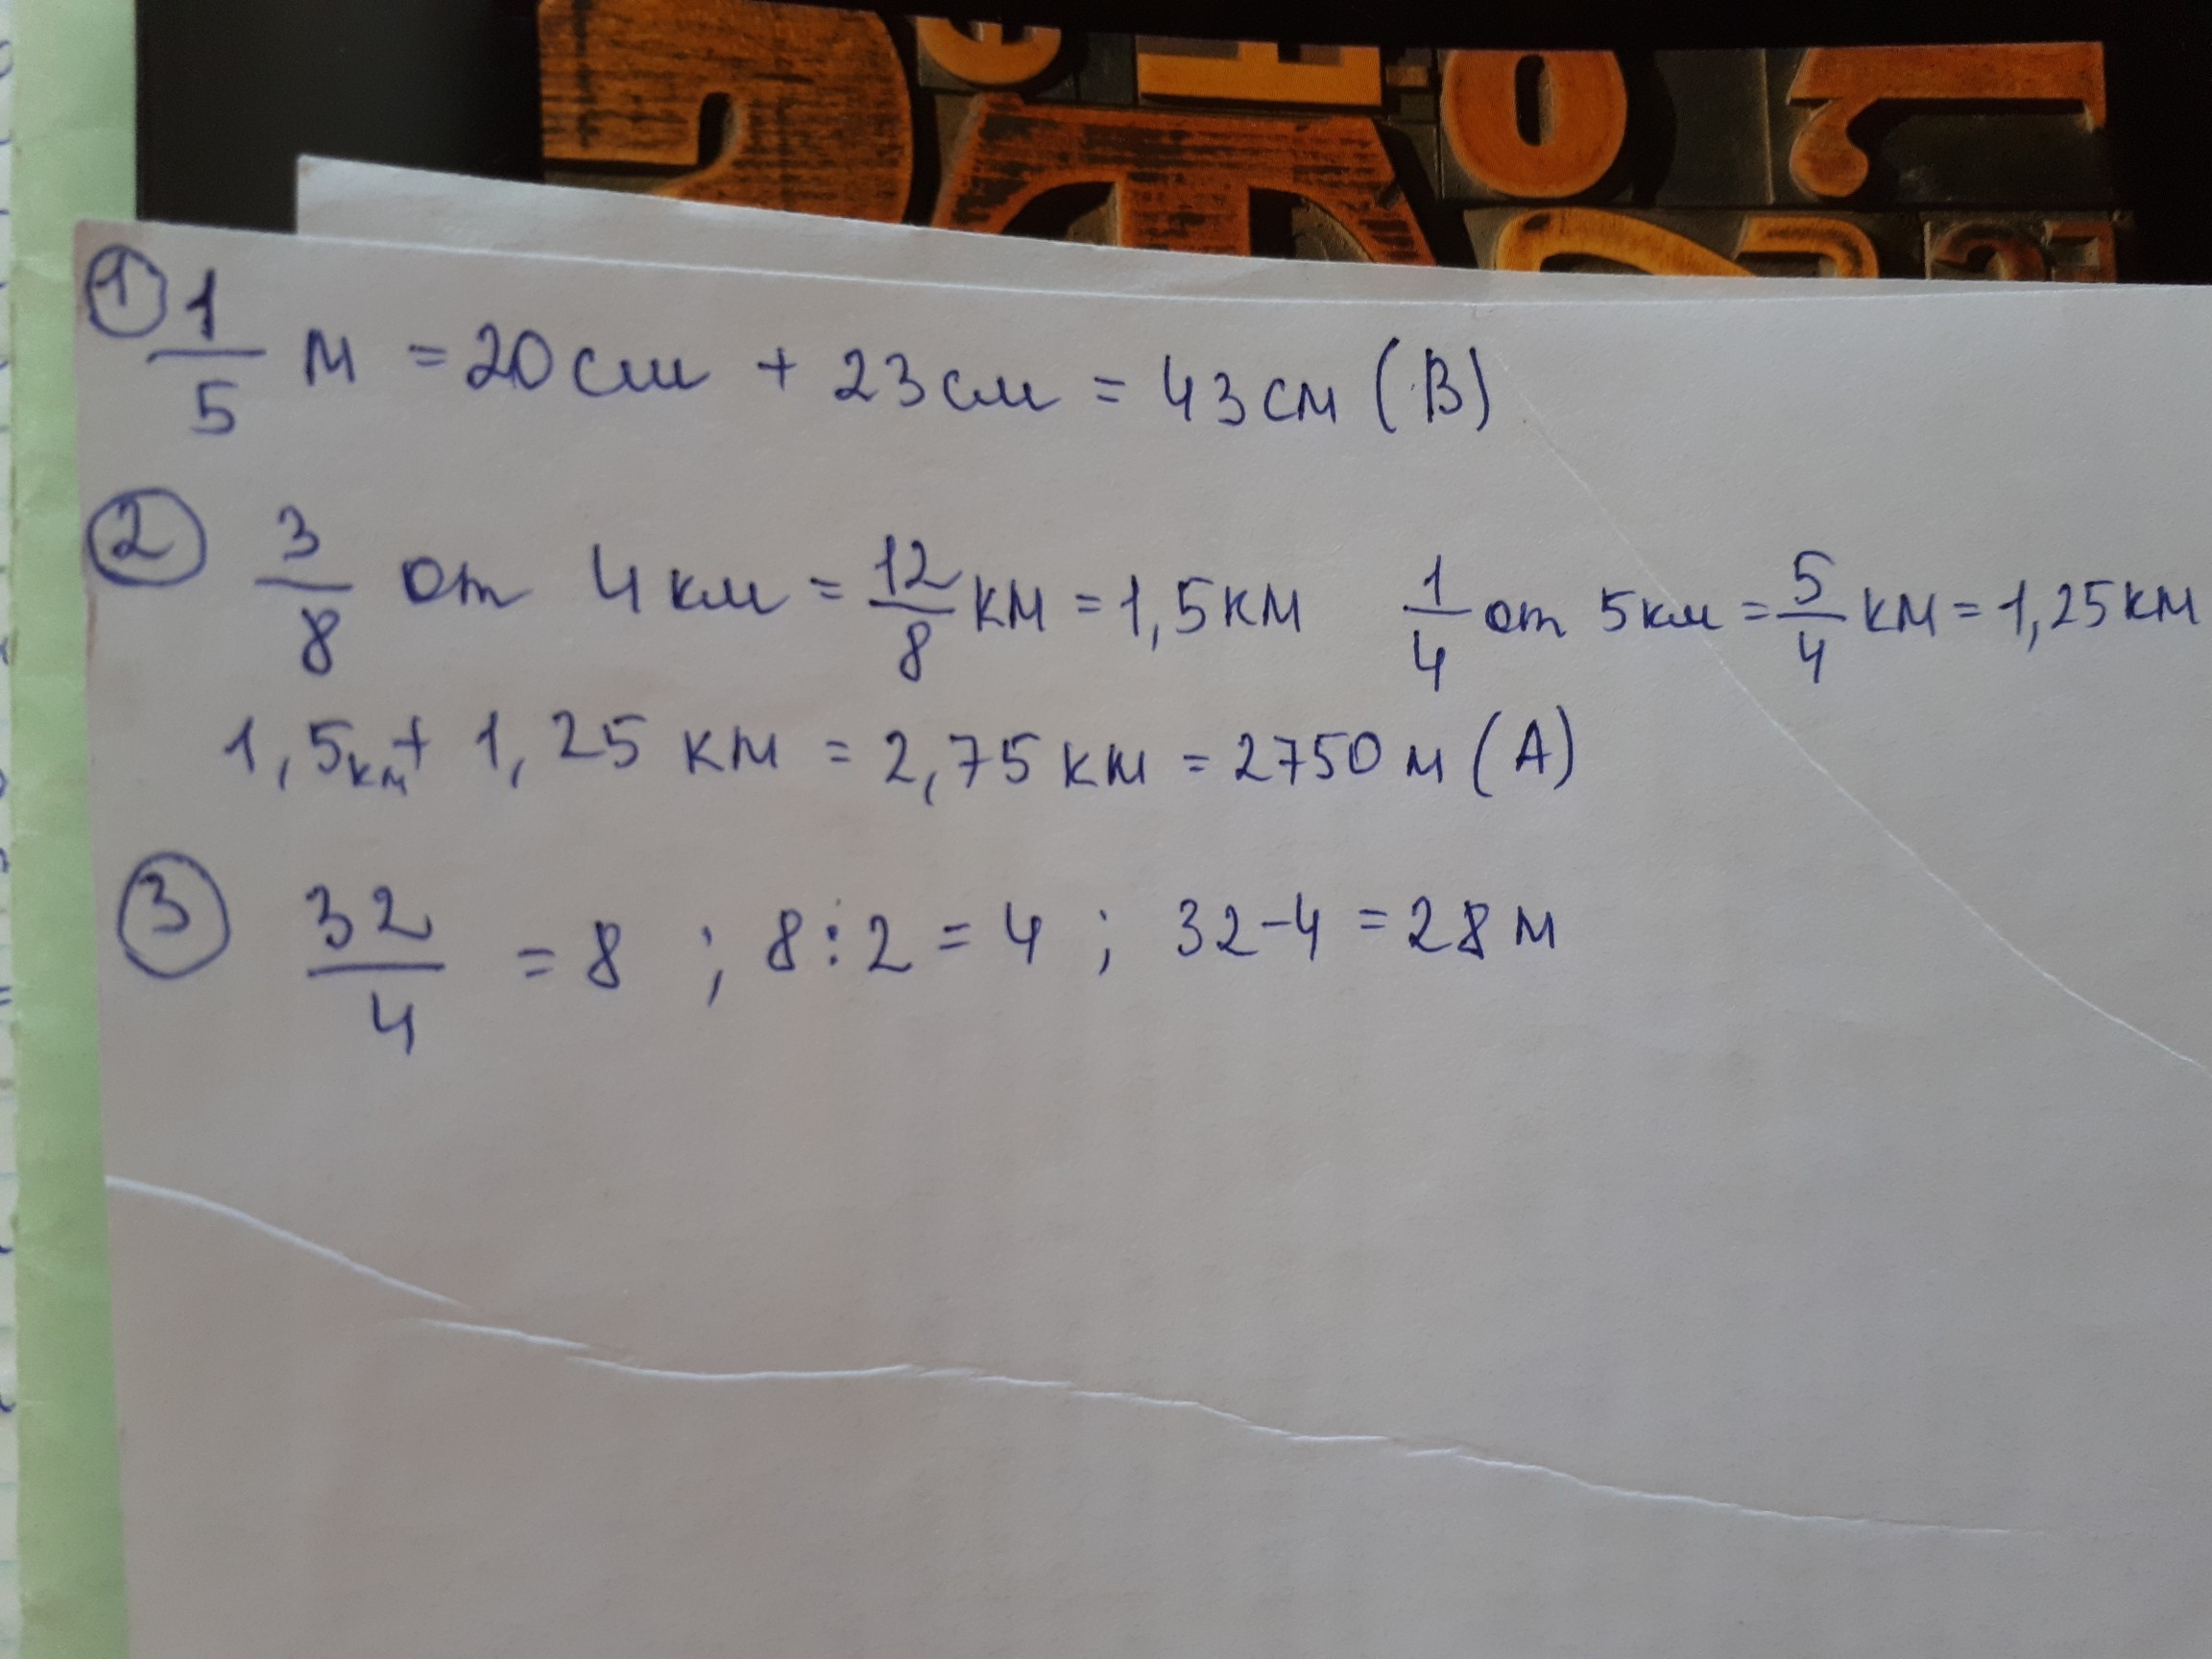 ① 1/5 м = 20 см + 23 см = 43 см (В)
② 3/8 от 4 км = 12/8 км = 1,5 км 1/4 от 5 км = 5/4 км = 1,25 км
1,5 км + 1,25 км = 2,75 км = 2750 м (А)
③ 32/4 = 8 ; 8 : 2 = 4 ; 32 - 4 = 28 м